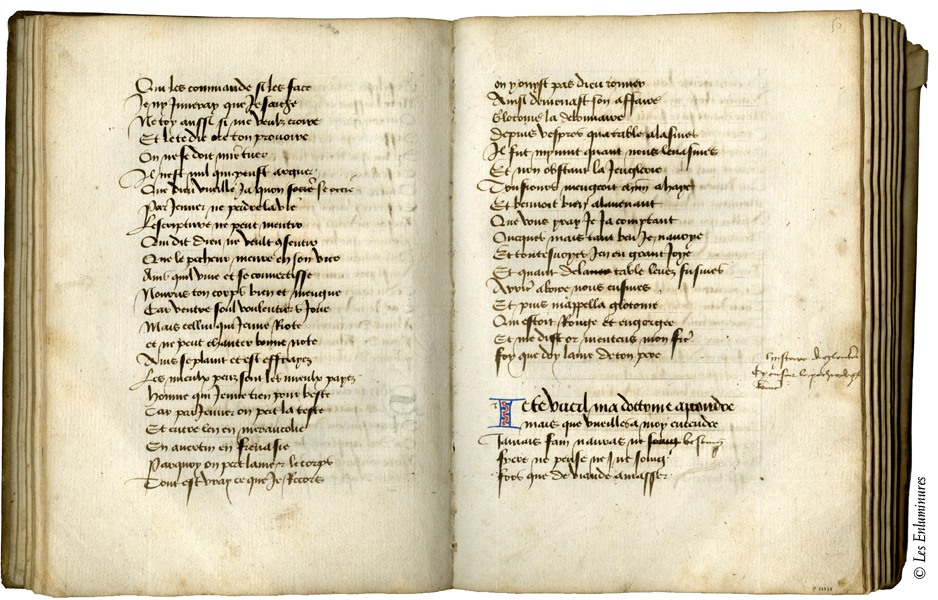 Qui les commande si les face
Je ny Jumeray que Je saiche
Ne toy aussi si me veulx croire
Et le te dit ton prouoire
On ne se doit tuer
Il nest nul qui peust arguer
Que dieu vueille Ja quon
Par Jeuner ne perdre la vie
Lescripture ne peut mentir
Qui dit dieu ne veult
Que le pecheur meure en son vice
Ains quil viue et se conuertisse
Nourris ton corps bien et mengue
Car ventre soul voulentiers Joue
Mais cellui qui Jeune Riote
et ne peut chanter bonne note
Ains se plaint et est effrayez
Les mieulx peuz sont les mieulx payez
homme qui Jeune tien pour beste
Car par Jeuner on pert la teste
Et entre len en merancolie
En auertin en frenasie
Parquoy on pert lame et le corps
Tout est vray ce que Je Recors
on y ouyst pas dieu tonner
Ainsi demenast son affaire
Glotonie la debonnaire
Depuis vespres qua table alasmes
Il fut mynuit quant nous leuasmes
Et non obstant la Jenglerie
Tousiours mengoit
Et beuuoit bien alauenant
Que vous yray Je Ja comptant
Oncques mais tant beu Je nauoye
Et toutesuoyes Jen eu grant Joye
Et quant de la table leuez fusmes
aboire nous eusmes
Et puis mappella glotonie
Qui estoit Rouge et engorgee
Et me dist or mentens mon
foy que doy lame de ton pere
Je te vueil ma doctrine aprendre
mais que vueilles a moy entendre
Jamais fain nauras ne besoing
fors que de viande amasser
© Les Enluminures